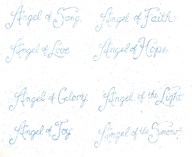 Angel of Song.
Angel of Faith.
Angel of Love
Angel of Hope.
Angel of Glory.
Angel of the Light
Angel of Joy
Angel of the